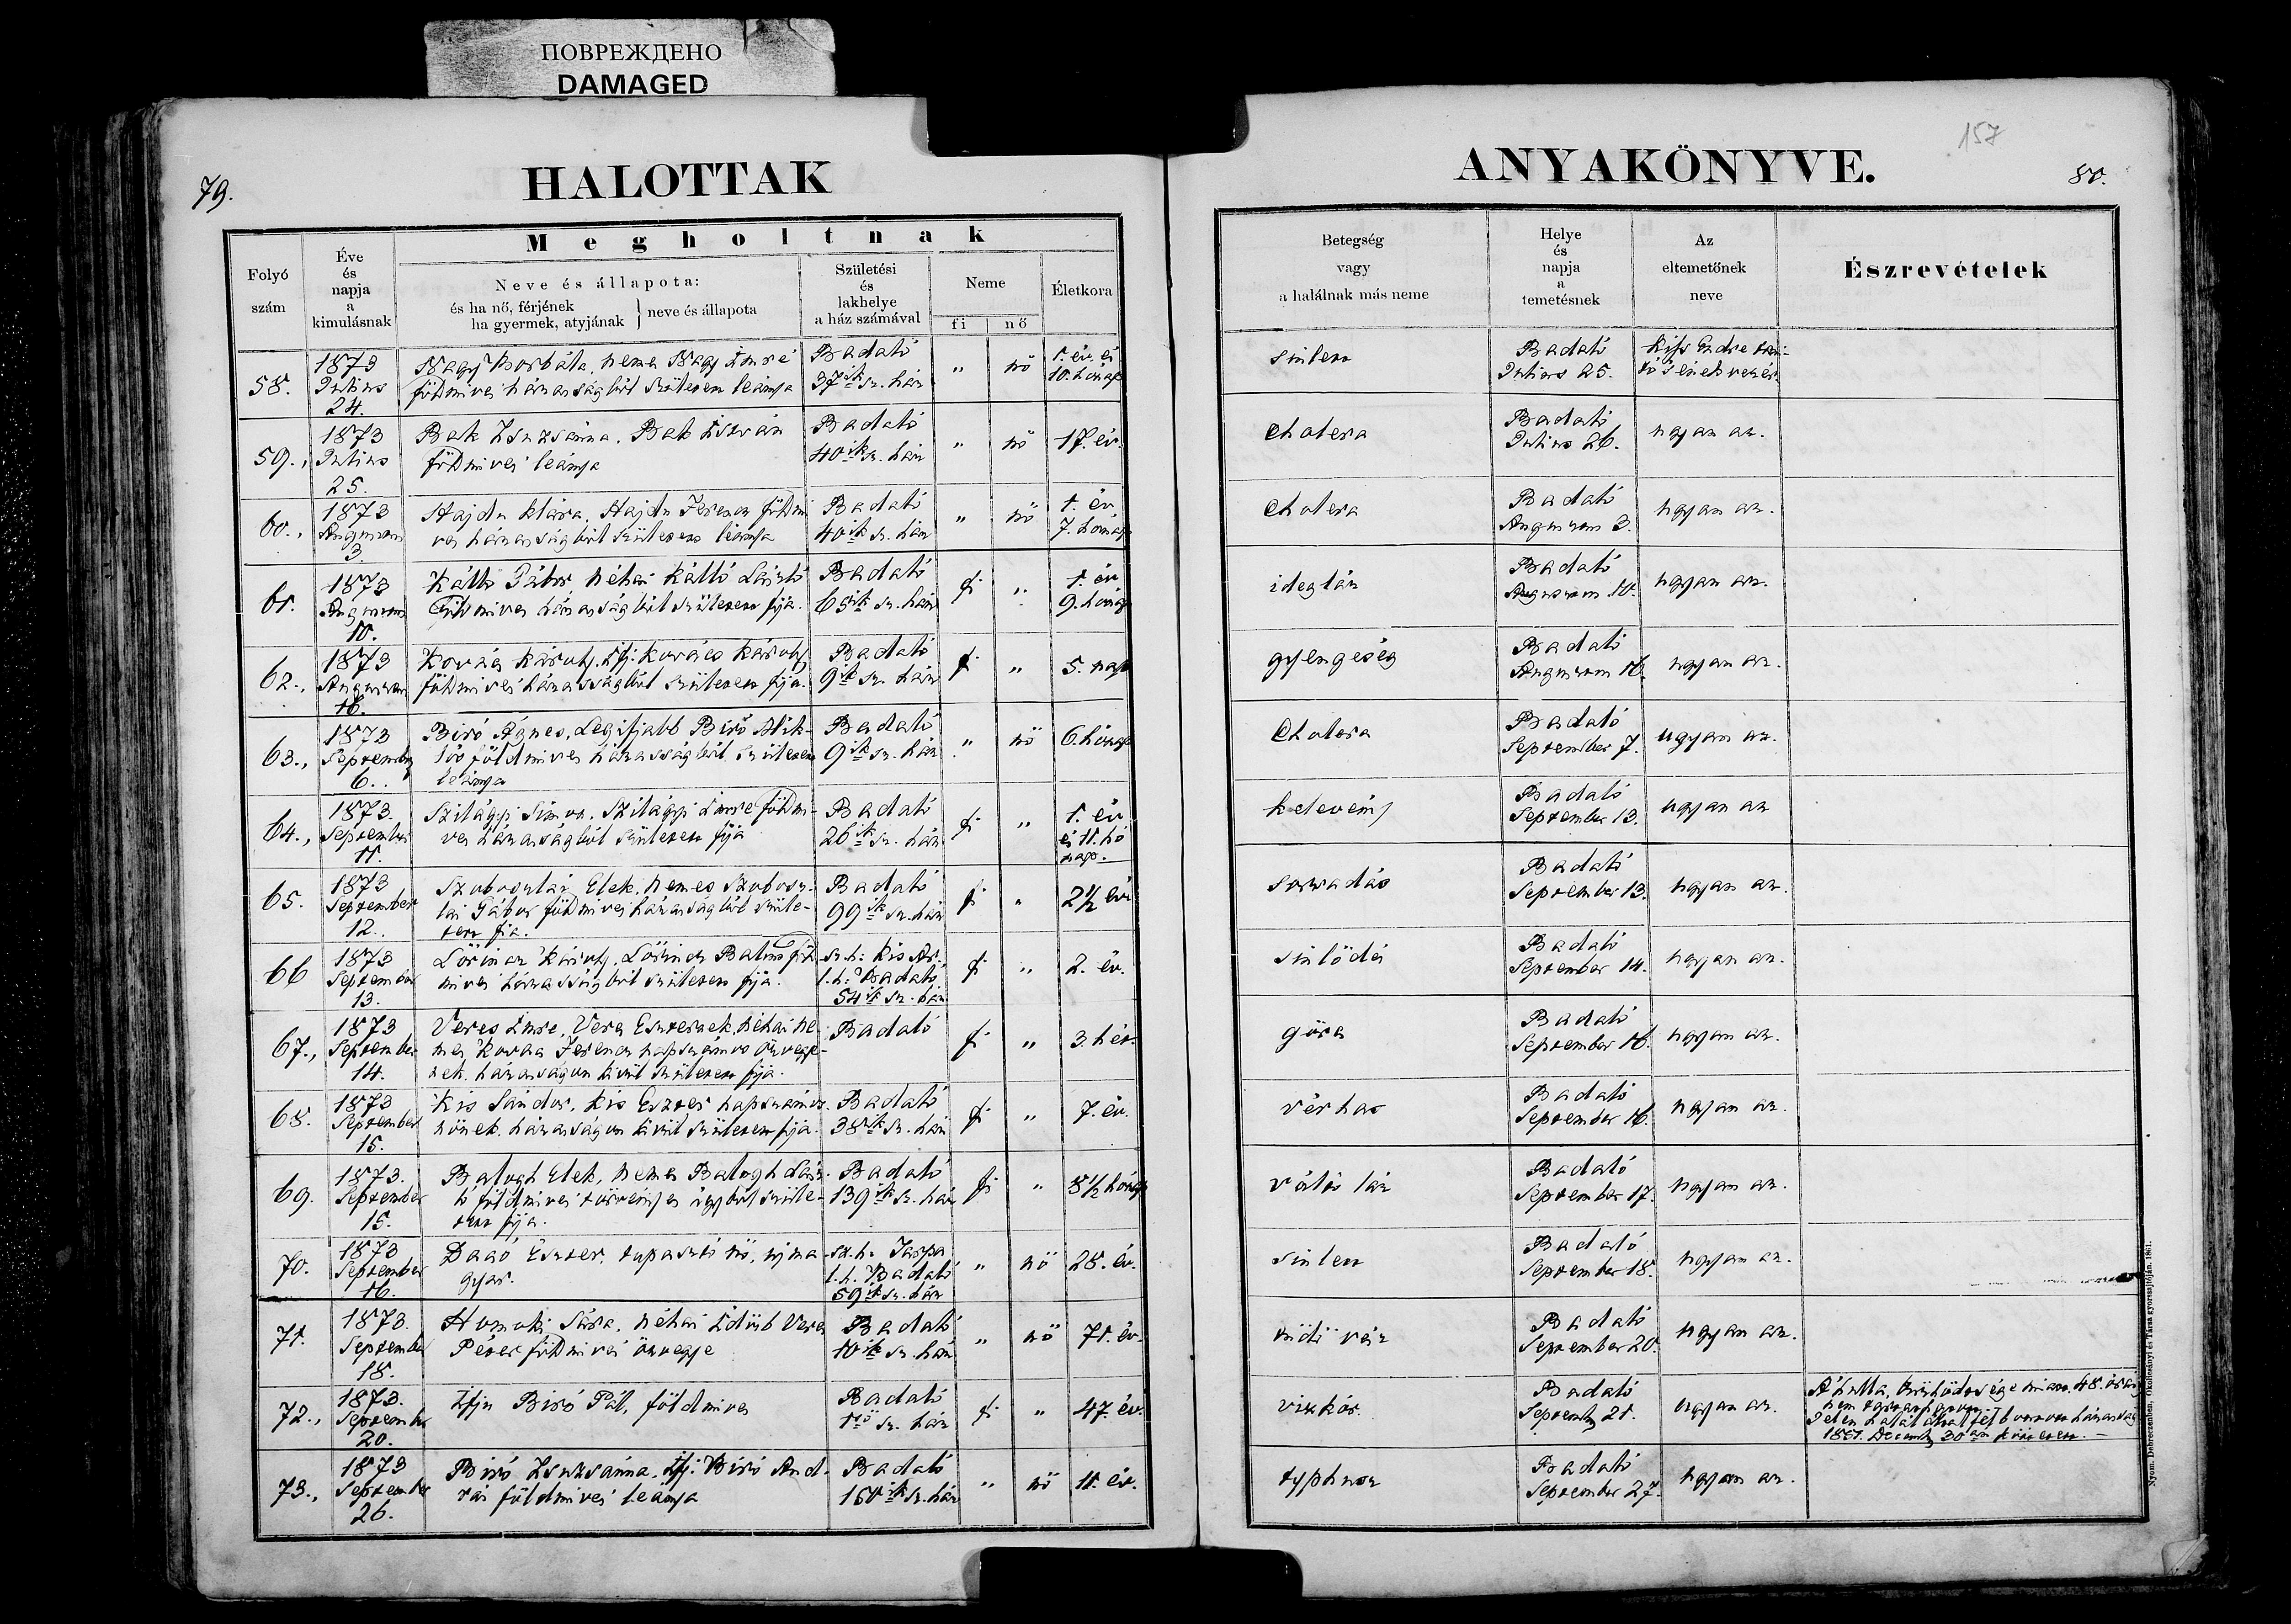 ПОВРЕЖДЕНО
DAMAGED
79.
HALOTTAK
Folyó szám
Éve és napja a kimulásnak
Megholtnak
Neve és állapota:
és ha nő, férjének
ha gyermek, atyjának } neve és állapota
Születési és lakhelye a ház számával
Neme
fi nő
Életkora
58. 1873 Julius 24.
Nagy Borbála, nemes Nagy Imre
földmives házasságból született leánya
Badaló 37ik sz. ház
" nő
1. év és 10. hónap
59., 1873 Julius 25.
Bak Zsuzsánna. Bak István
földmives leánya
Badaló 40ik sz. ház
" nő
17. év.
60., 1873 3.
Hajdu Klára, Hajdu Ferencz földmi
ves házasságból született leánya
Badaló 40ik sz. ház
" nő
1. év 7. hónap
61. 1873 10.
Kálló Gábor néhai Kálló László
földmives házasságból született fija.
Badaló 65ik sz. ház
fi "
1. év 9. hónap
62., 1873 16.
Kovács Károly. Ifj. Kovács Károly
földmives házasságból született fija.
Badaló 9ik sz. ház
fi "
5. nap
63., 1873 September 6.
Biró Ágnes, Legifjabb Biró Mik-
lós földmives házasságból született
leánya
Badaló 9ik sz. ház
" nő
6. hónap
64., 1873. September 11.
Szilágyi Simon. Szilágyi Imre földmi-
ves házasságból született fija
Badaló 26ik sz. ház
fi "
1. év és 11. hó nap.
65. 1873 September 12.
Szoboszlai Elek. nemes Szobosz-
lai Gábor földmives házasságból szüle-
tett fia.
Badaló 99ik sz. ház
fi "
2½ év
66 1873 September 13.
Lőrincz Károly. Lőrincz Balint föld
mives házasságból született fija.
sz. h: Kis Ar.
l. h: Badaló 54ik sz. ház
fi "
2. év.
67., 1873 September 14.
Veres Imre, Veres Eszternek, néhai ne
mes Kovács Ferencz napszámos özvegyé-
nek. házasságon kivül született fija.
Badaló
fi "
3. hét.
68. 1873 September 15.
Kis Sándor. Kis Eszter napszámos
nőnek. házasságon kivül született fija.
Badaló 38ik sz. ház
fi "
7. év.
69. 1873. September 15.
Balogh Elek, nemes Balogh Lász-
ló földmives törvenyes ágyból szüle-
tett fija.
Badaló 139ik sz. ház
fi "
8½ hónap
70. 1873 September 16.
Eszter, tapasztó nő, ujma
gyar.
sz. h.
l. h. Badaló 59ik sz. ház
" nő
28. év.
71. 1873. September 18.
Homoki Sára. néhai Idősb Veres
Péter földmives özvegye
Badaló 10ik sz. ház
" nő
71. év.
72., 1873. September 20.
Ifju Biró Pál, földmives
Badaló 1ső sz. ház
fi "
47. év.
73., 1873 September 26.
Biró Zsuzsánna. Ifj. Biró And-
rás földmives leánya
Badaló 160ik sz. ház
" nő
11. év.
157
ANYAKÖNYVE.
80.
Betegség vagy a halálnak más neme
Helye és napja a temetésnek
Az eltemetőnek neve
Észrevételek
sinlett
Badaló Julius 25.
Kiss Endre tani-
tó s énekvezér
Cholera
Badaló Julius 26.
ugyan az.
Cholera
Badaló 3.
ugyan az.
ideg láz
Badaló 10.
ugyan az.
gyengeség
Badaló 16.
ugyan az.
Cholera
Badaló September 7.
ugyan az.
kelevény
Badaló September 13.
ugyan az
sorvadás
Badaló September 13.
ugyan az.
sinlődés
Badaló September 14.
ugyan az.
görcs
Badaló September 16.
ugyan az.
vérhas
Badaló September 16.
ugyan az.
váltó láz
Badaló September 17.
ugyan az.
sinlett
Badaló September 18.
ugyan az.
Badaló September 20.
ugyan az.
vizkór.
Badaló September 21.
ugyan az.
A hulla, büzhödtsége miatt 48. óráig
nem
Jelen halál által felbontatott házasság
1851. December 30án köttetett. —
typhus
Badaló September 27.
ugyan az.
Nyom. Debreczenben, Okolicsányi és Társa gyorssajtóján. 1861.